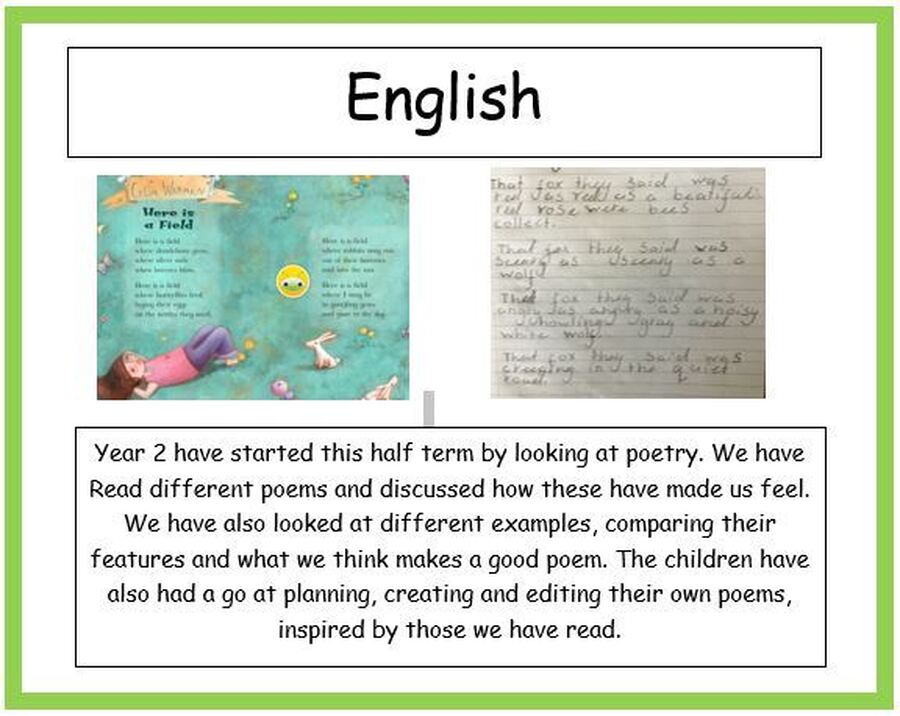 English
Here is
a Field
Here is a field
where dandelions grow,
Here is a field
where butterflies feed,
laying their eggs
on the nettles they need.
Here is a field
where rabbits
out of their burrows
and into the sun.
Here is a field
where I may lie
in
and gaze to the sky.
That fox they said was
red as red as a
red rose were bees
collect.
That fox they said was
scary as scary as a
wolf
That fox they said was
angry as angry as a noisy
howling gray and
white wolf.
That fox they said was
creeping in the quiet
Year 2 have started this half term by looking at poetry. We have
Read different poems and discussed how these have made us feel.
We have also looked at different examples, comparing their
features and what we think makes a good poem. The children have
also had a go at planning, creating and editing their own poems,
inspired by those we have read.